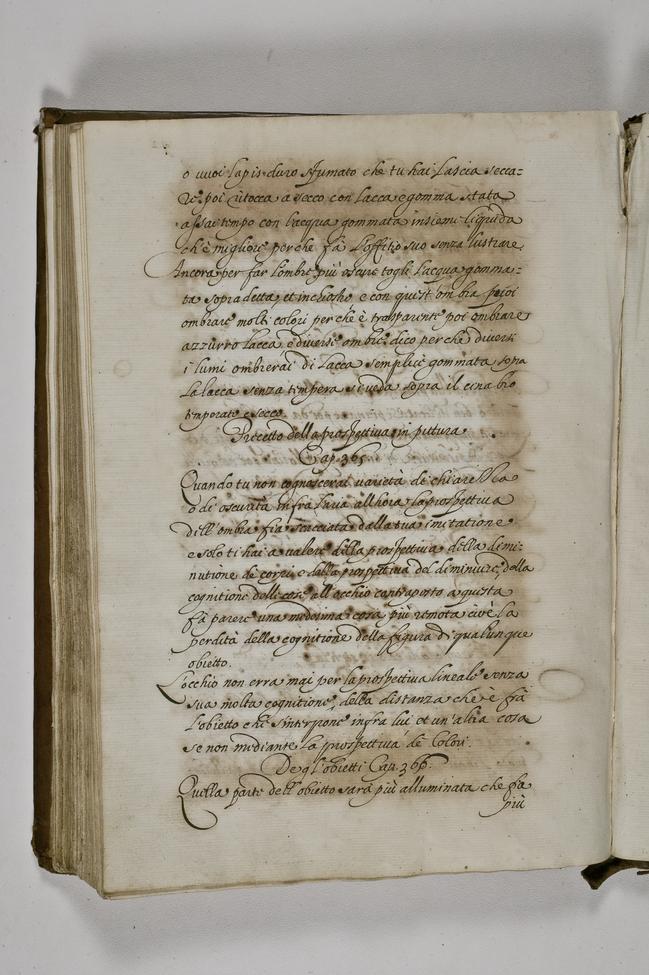 o vuoi lapis duro sfumato che tu hai lascia secca=
re poi ritocca a secco con lacca e gomma stata
assai tempo con l'acqua gommata insieme liquida
ch'è migliore perche fà l'offitio suo senza lustrare.
Ancora per far l'ombre più oscure togli l'acqua gomma=
ta sopradetta et inchiostro e con quest'ombra puoi
ombrare molti colori perche è trasparente poi ombrare
azzurro lacca e diverse ombre dico perche diversi
i lumi ombrerai di lacca semplice gommata sopra
la lacca senza tempera si veda sopra il cinabrio
temperato e secco.
Precetto della prospettiva in pittura.
Cap. 365.
Quando tu non cognoscerai varietà de chiarezza
o di oscurità infra l'aria allhora la prospettiva
dell'ombra fia scacciata dalla tua imitatione
e solo ti hai a valere della prospettiva della dimi=
nutione de corpi e dalla prospettiva del deminuire della
cognitione delle cose all'occhio contraposto a questa
fà parere una medesima cosa più remota cioè la
perdita della cognitione della figura di qualunque
obietto.
L'occhio non erra mai per la prospettiva lineale senza
sua molta cognitione della distanza che è frà
l'obietto e che s'interpone infra lui et un'altra cosa
se non mediante la prospettiva de colori.
De gl'obietti Cap. 366.
Quella parte dell'obietto sarà più alluminata che fia
più